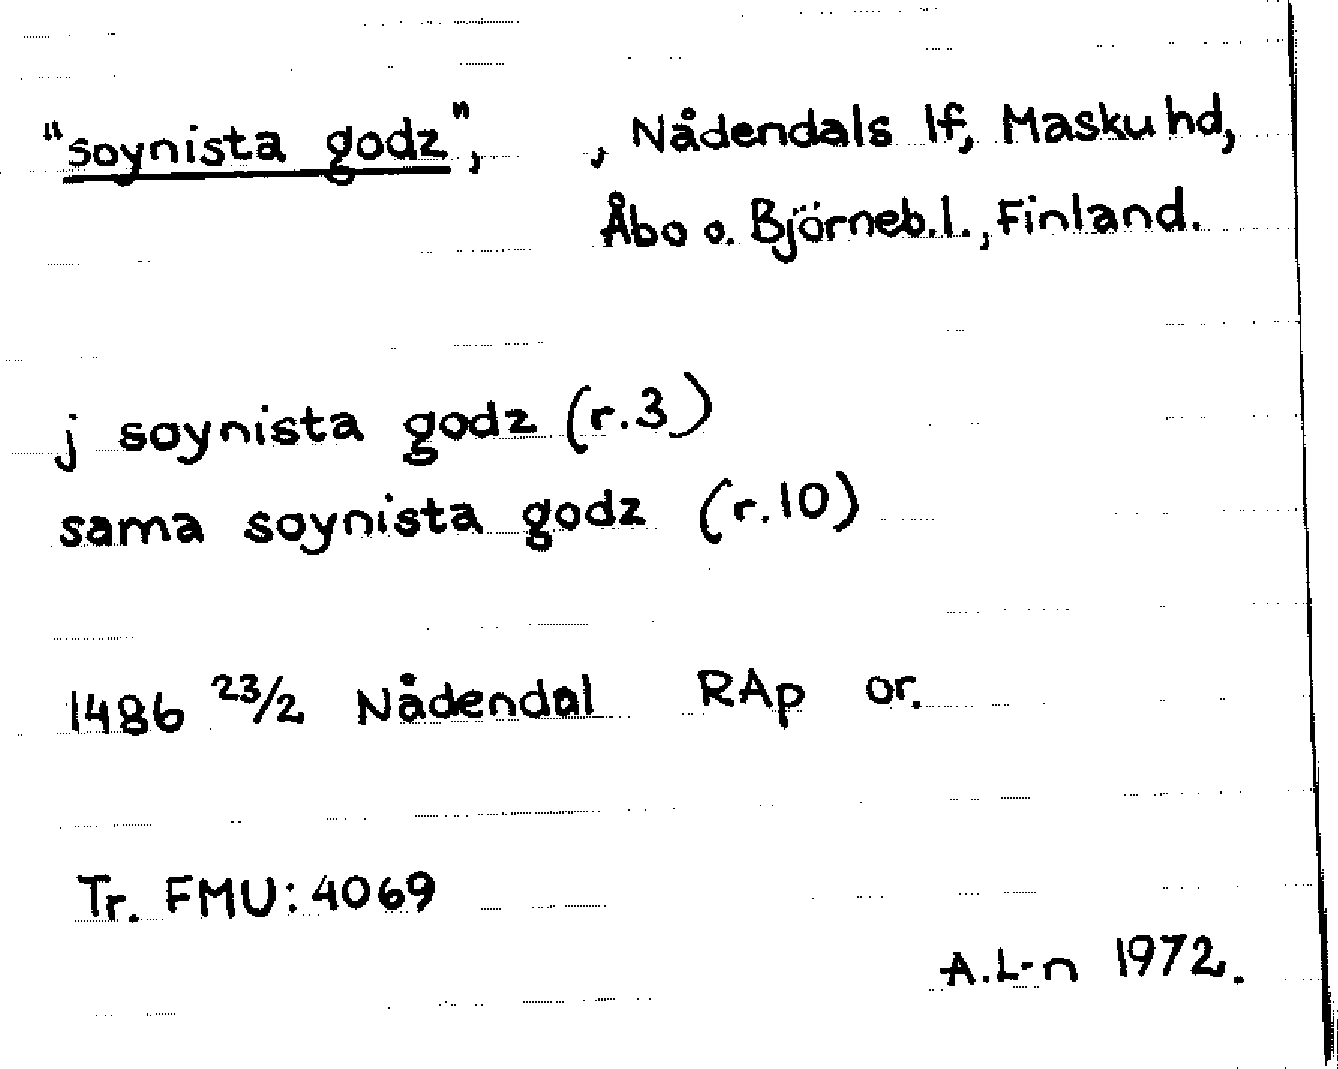 "soynista godz", , Nådendals lf, Masku hd,
Åbo o. Björneb.l., Finland.
j soynista godz (r.3)
sama soynista godz (r.10)
1486 23/2 Nådendal RAp or.
Tr. FMU: 4069
A.L-n 1972.